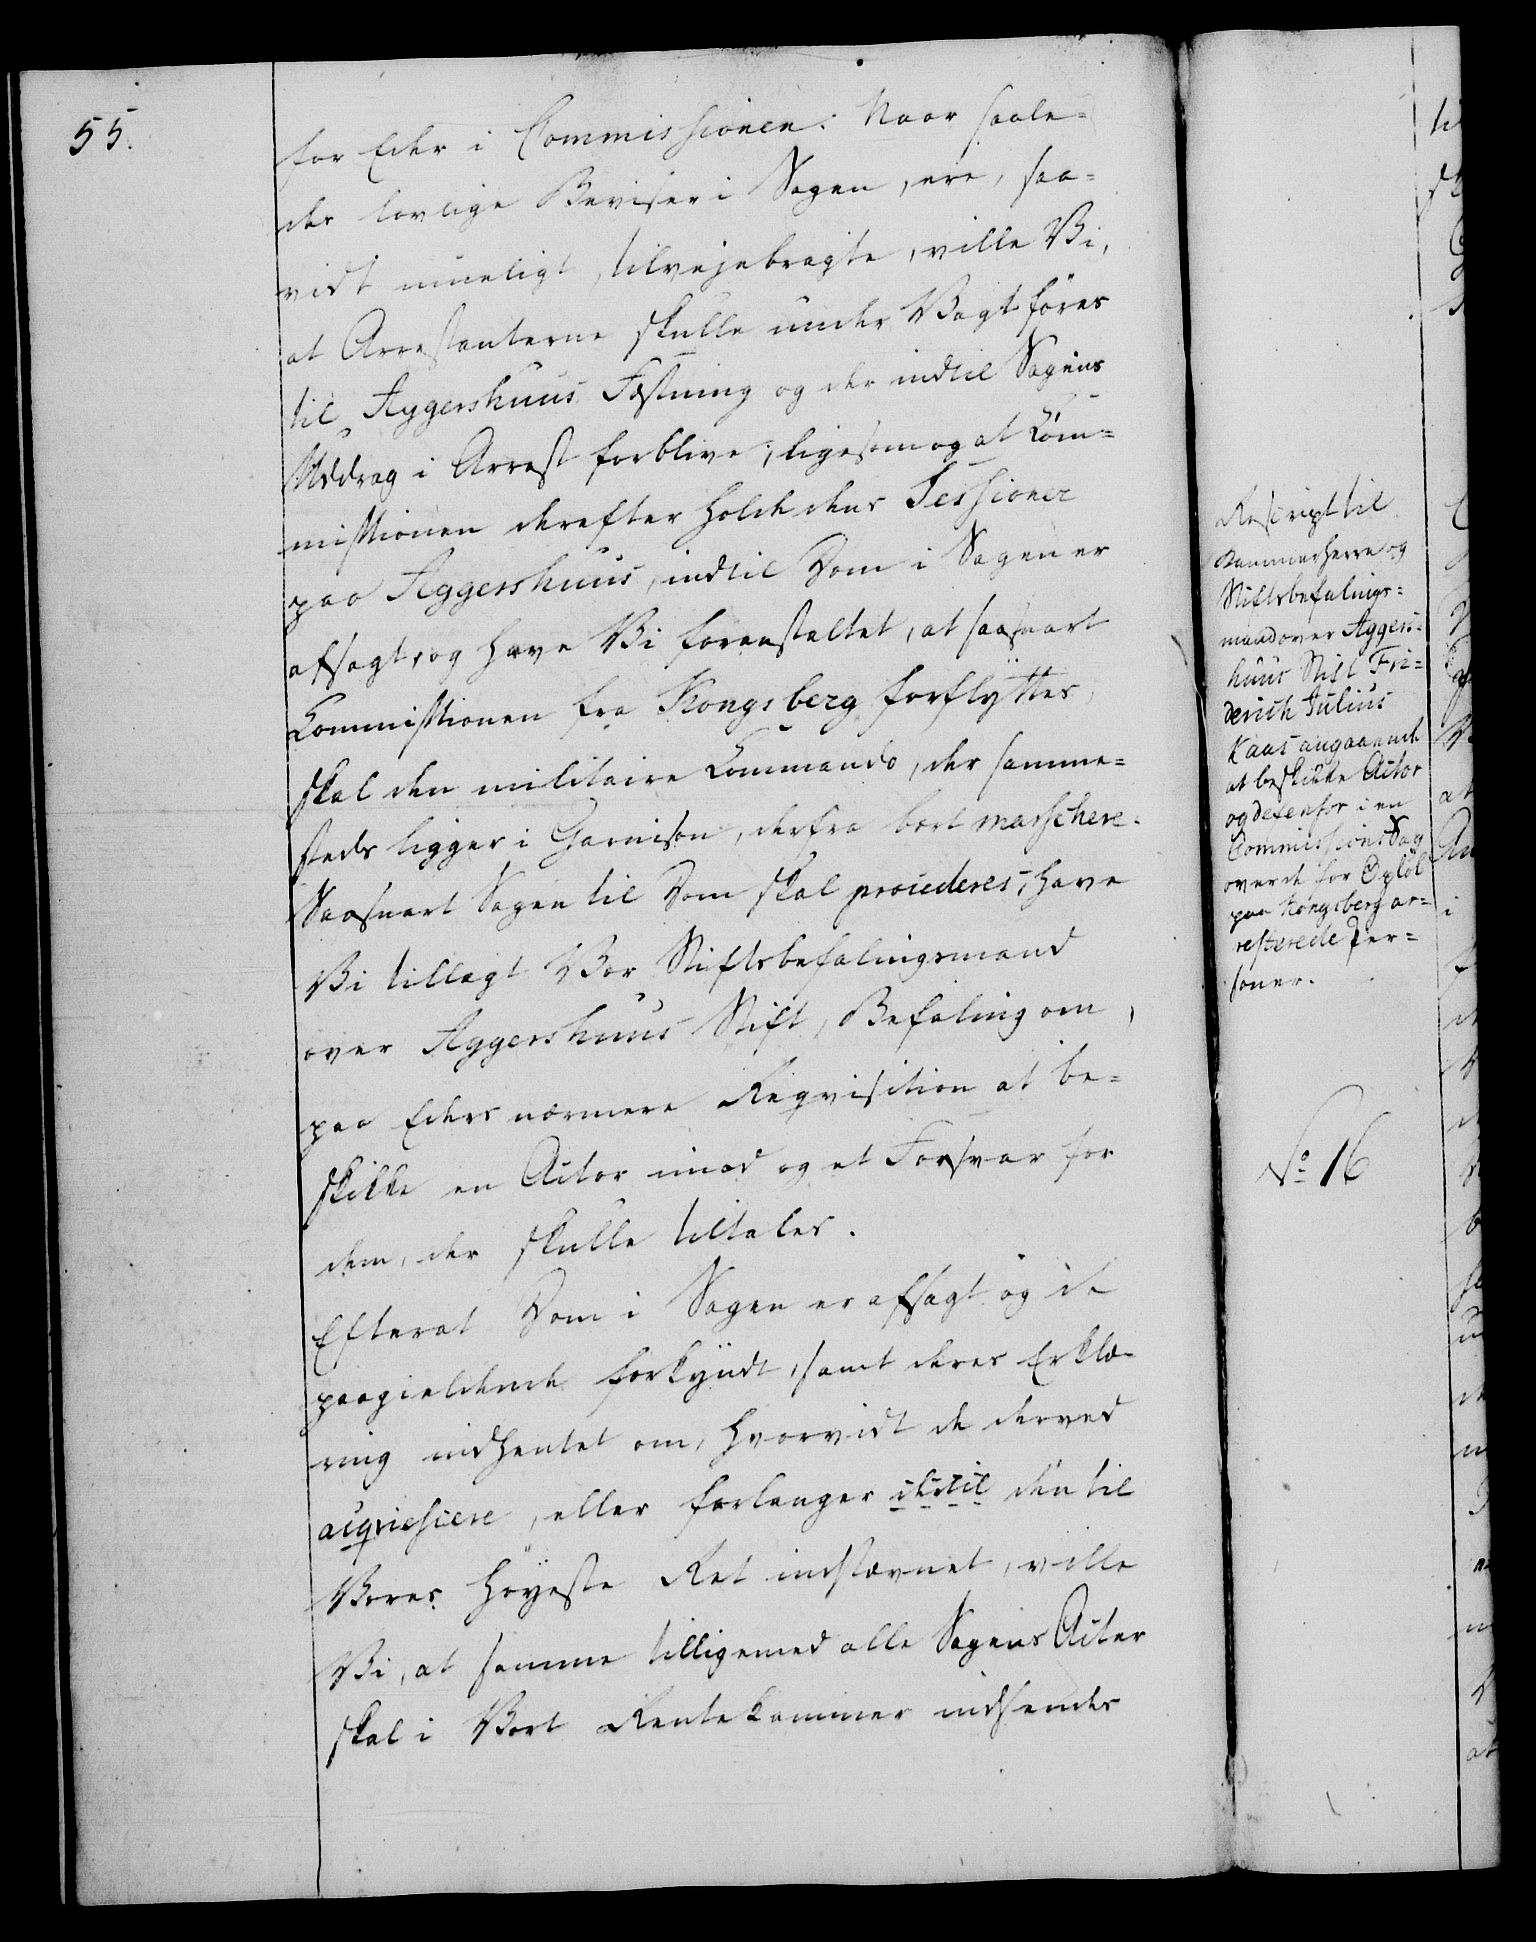 55.
for Eder i Commissionen. Naar saale-
des lovlige Beviser i Sagen, ere, saa-
vidt mueligt, tilvejebragte, ville Vi,
at Arrestanterne skulle under Vagt føres
til Aggershuus Fæstning og der indtil Sagens
Uddrag i Arrest forblive; ligesom og at Com-
missionen derefter holde dens Sessioner
paa Aggershuus, indtil Dom i Sagen er
afsagt, og have Vi foranstaltet, at saasnart
Commissionen fra Kongsberg forflyttes,
skal den militaire Commando, der samme-
steds ligger i Garnison, derfra bort marschere.
Saasnart Sagen til Dom skal procederes, have
Vi tillagt Vor Stiftsbefalingsmand
over Aggershuus Stift, Befaling om,
paa Eders nærmere Reqvisition at be-
skikke en Actor imod og et Forsvar for
dem, der skulle tiltales.
Efterat Dom i Sagen er afsagt og de
paagieldende forkyndt, samt deres Erklæ-
ring indhentet om, hvorvidt de derved
acqviescere, eller forlanger den til
Vores Høyeste Ret indstævnet, ville
Vi, at samme tilligemed alle Sagens Acter
skal i Vort Rentekammer indsendes
Rescript til
Kammerherre og
Stiftsbefalings-
mand over Aggers-
huus Stift Fri-
derich Julius
Kaas angaaende
at beskikke Actor
og defensor i en
Commissions Sag
over de for Opløb
paa Kongsberg ar-
resterede Per-
soner.
No 16